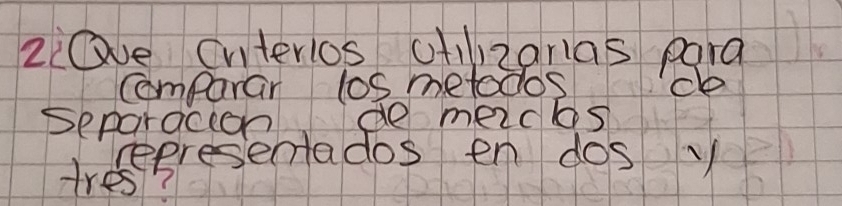 2¿Que criterios utilizarias para
comparar los metodos de
separacion de mezclas
representados en dos y
tres?